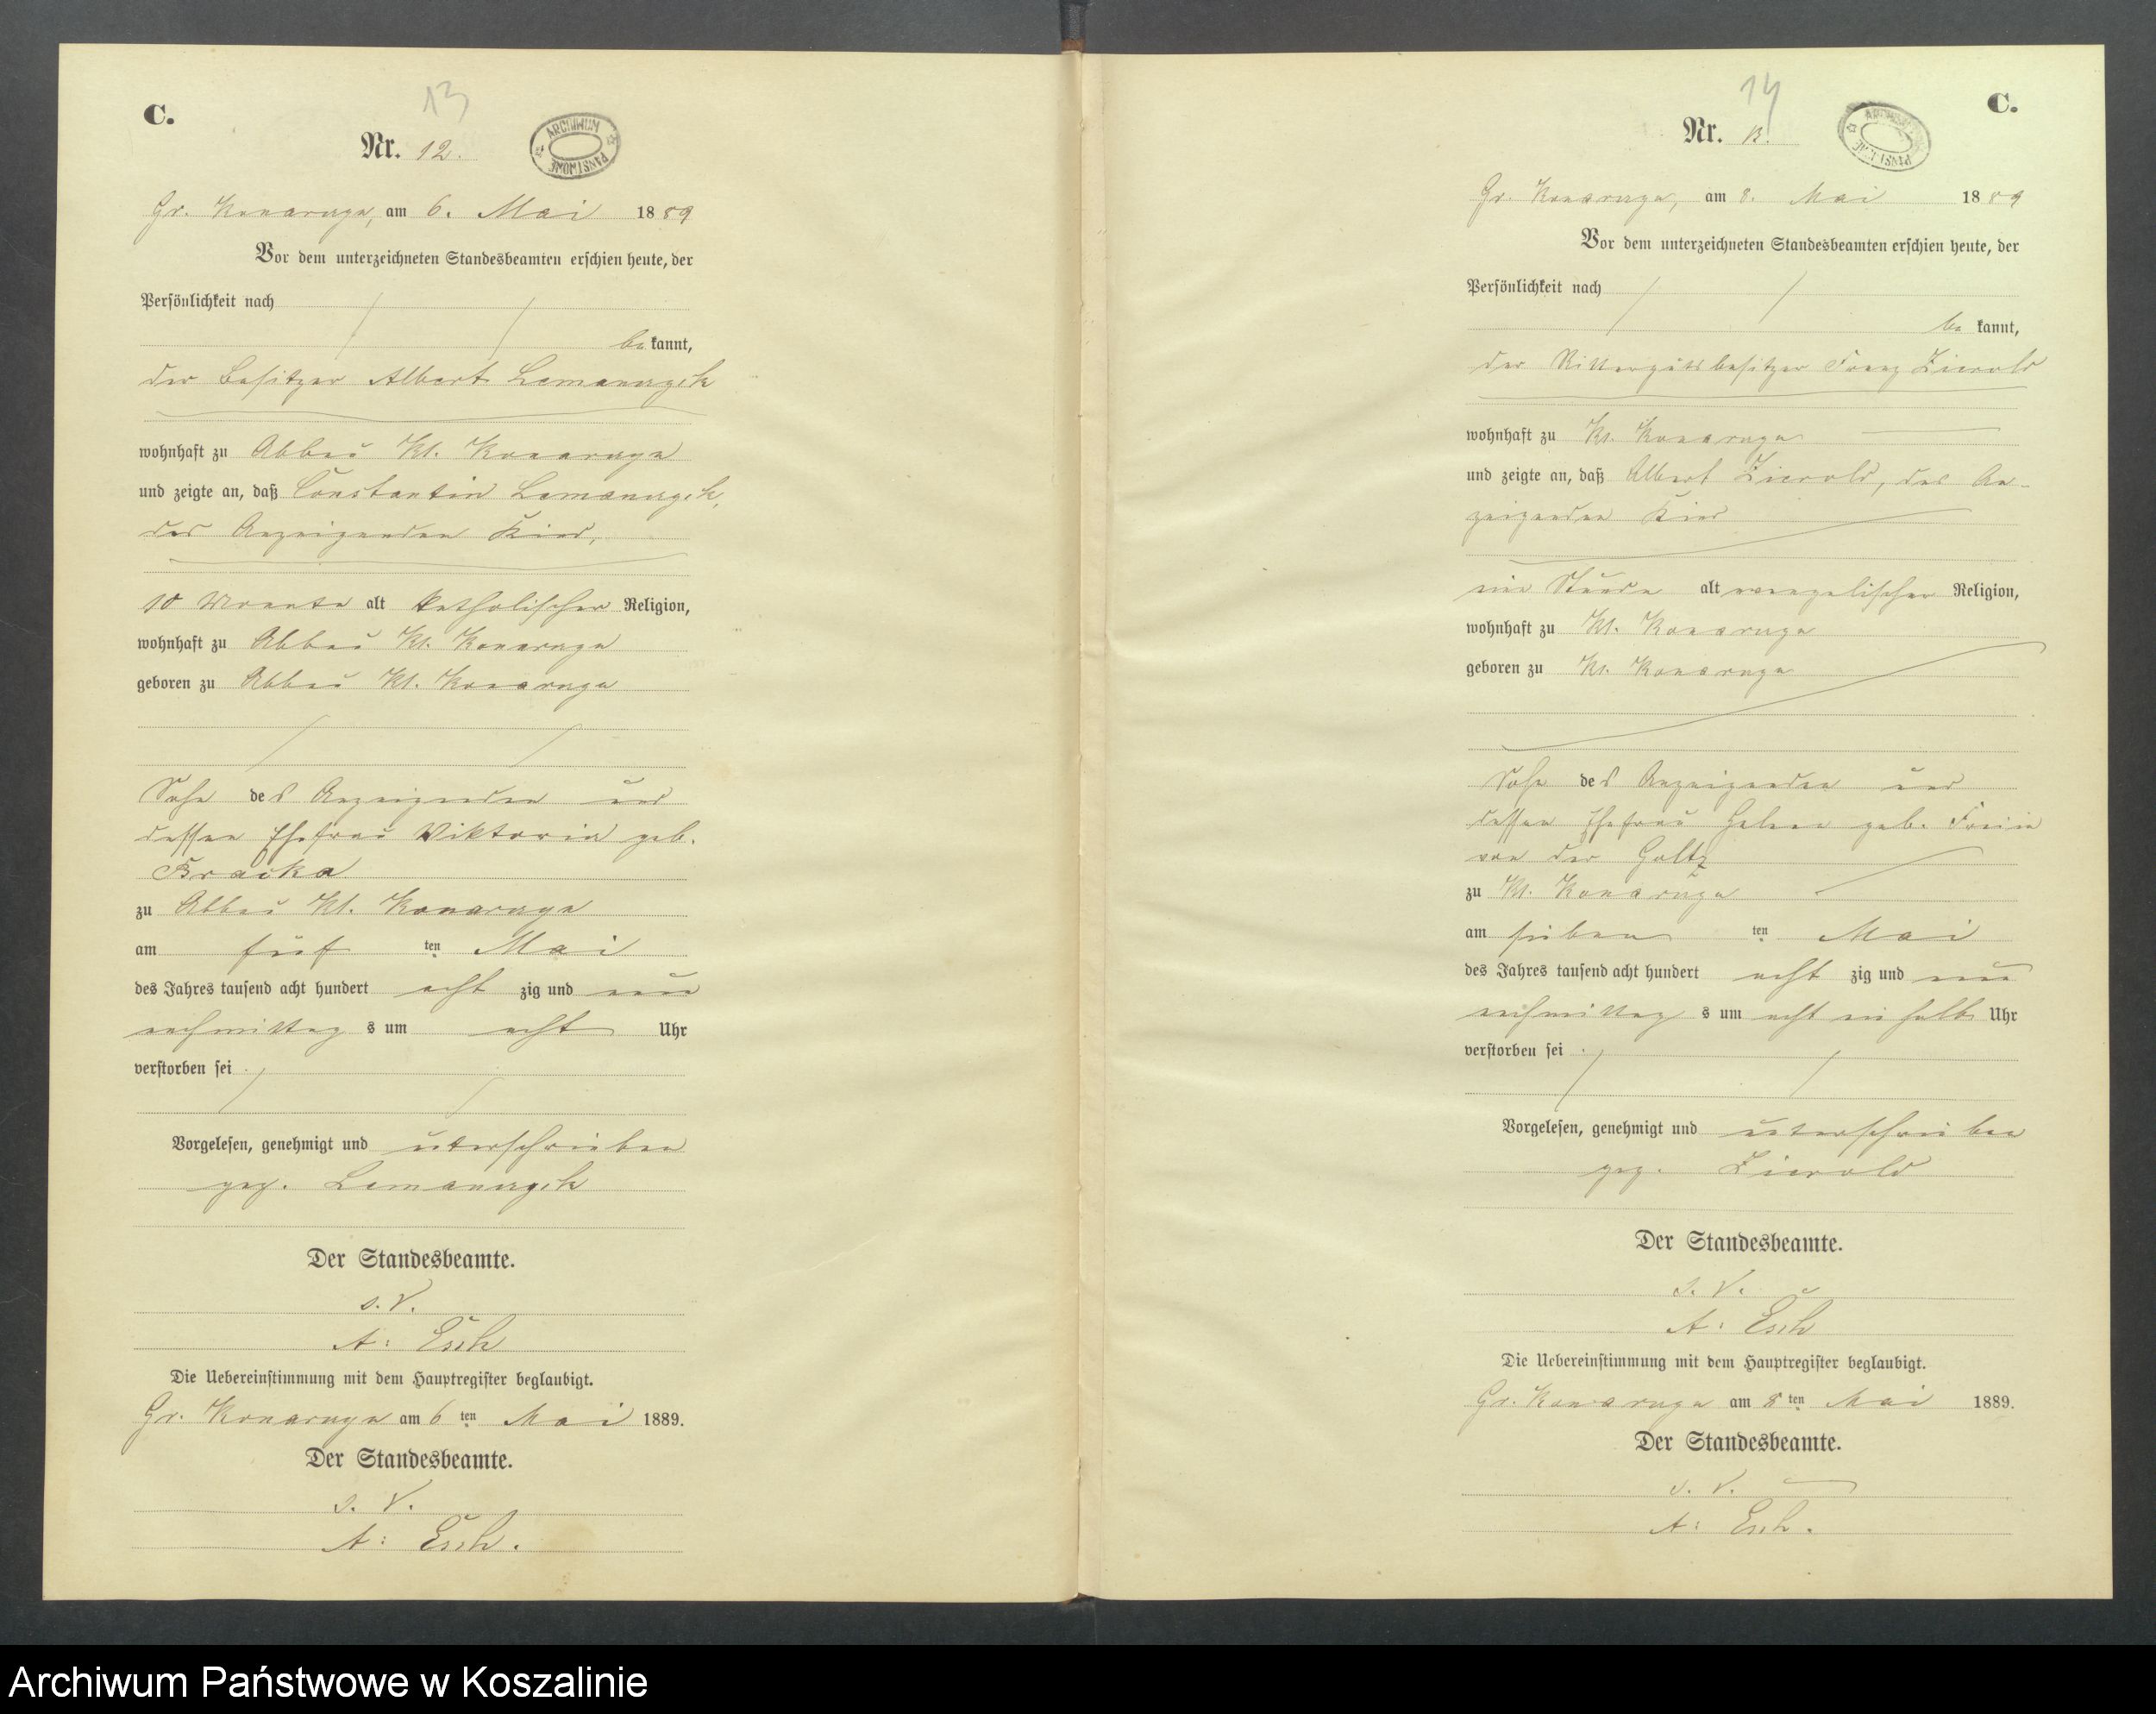 C.
13
Nr. 12.
ARCHIWUM PAŃSTWOWE
Gr. Konarzyn, am 6. Mai 1889
Vor dem unterzeichneten Standesbeamten erschien heute, der
Persönlichkeit nach
be kannt,
der Besitzer Albert
wohnhaft zu Abbau Kl. Konarzyn
und zeigte an, daß Constantin
des Anzeigenden Kind,
10 Monate alt katholischer Religion,
wohnhaft zu Abbau Kl. Konarzyn
geboren zu Abbau Kl. Konarzyn
Sohn des Anzeigenden und
dessen Ehefrau Viktoria geb.
zu Abbau Kl. Konarzyn
am fünf ten Mai
des Jahres tausend acht hundert acht zig und neun
nachmittag s um acht Uhr
verstorben sei
Vorgelesen, genehmigt und unterschrieben
gez.
Der Standesbeamte.
s. V.
A: Esch
Die Uebereinstimmung mit dem Hauptregister beglaubigt.
Gr. Konarzyn am 6 ten Mai 1889.
Der Standesbeamte.
s. V.
A: Esch.
C.
14
Nr. 13.
ARCHIWUM PAŃSTWOWE
Gr. Konarzyn, am 8. Mai 1889
Vor dem unterzeichneten Standesbeamten erschien heute, der
Persönlichkeit nach
be kannt,
der Rittergutsbesitzer Franz Zierold
wohnhaft zu Kl. Konarzyn
und zeigte an, daß Albert Zierold, des An-
zeigenden Kind
eine Stunde alt evangelischer Religion,
wohnhaft zu Kl. Konarzyn
geboren zu Kl. Konarzyn
Sohn des Anzeigenden und
dessen Ehefrau Helene geb. Freiin
von der Goltz
zu Kl. Konarzyn
am sieben ten Mai
des Jahres tausend acht hundert acht zig und neun
nachmittag s um acht ein halb Uhr
verstorben sei
Vorgelesen, genehmigt und unterschrieben
gez. Zierold
Der Standesbeamte.
s. V.
A: Esch
Die Uebereinstimmung mit dem Hauptregister beglaubigt.
Gr. Konarzyn am 8 ten Mai 1889.
Der Standesbeamte.
s. V.
A: Esch.
Archiwum Państwowe w Koszalinie